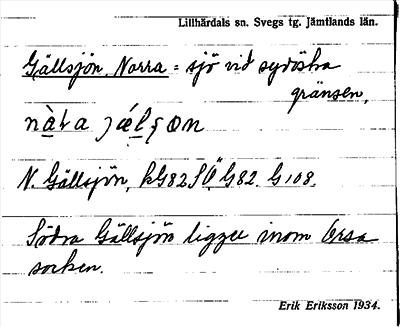 Lillhärdals sn. Svegs tg. Jämtlands län.
Gällsjön, Norra = sjö vid sydöstra
gränsen.
nàta jǽlʂɷn
N. Gällsjön, kG82SÖG82. G108.
Södra Gällsjön ligger inom Orsa
socken.
Erik Eriksson 1934.